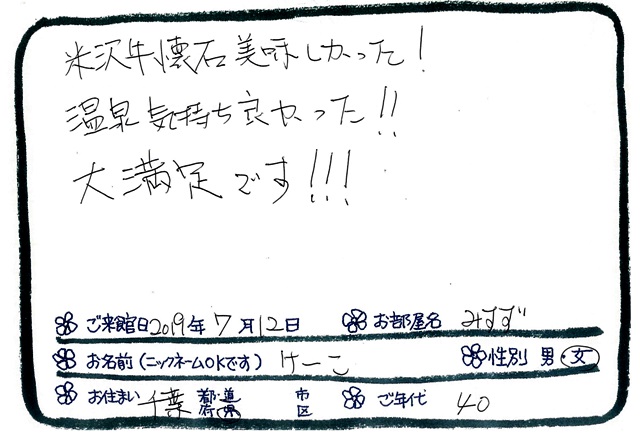 米沢牛懐石美味しかった!
温泉気持ち良かった!!
大満足です!!!
ご来館日2019年7月12日 お部屋名 みすず
お名前(ニックネームOKです) けーこ 性別 男・女
お住まい 千葉 都・道府・県 市区 ご年代 40